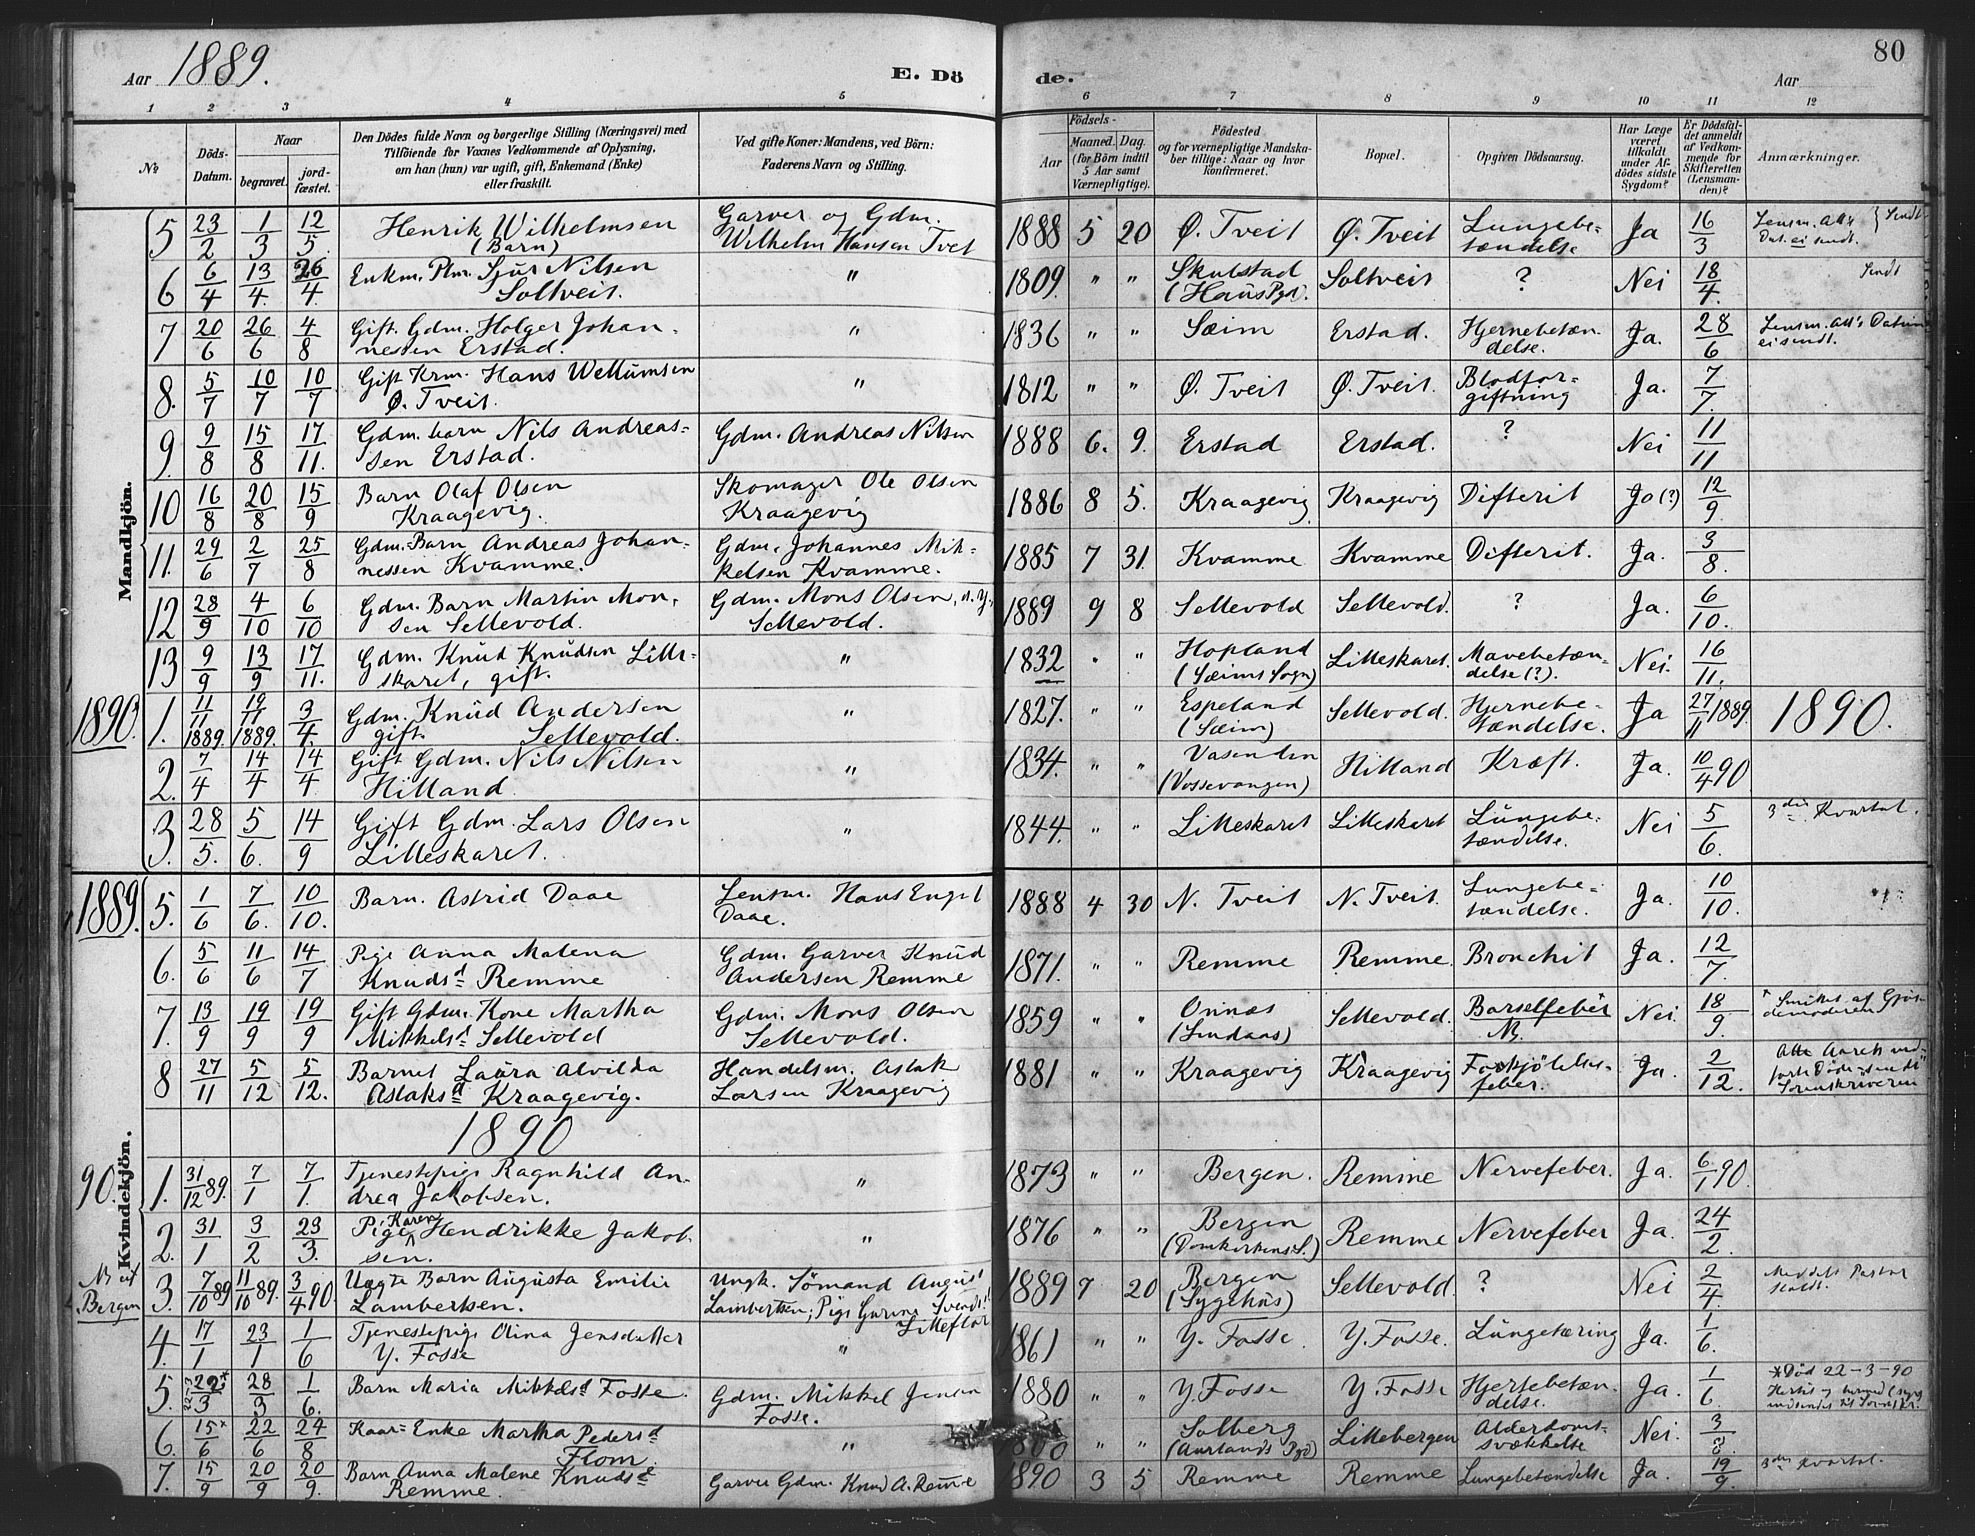 Aar 1889. E. Dö de. Aar 80
1 2 3 4 5 6 7 8 9 10 11 12
No
Döds-Datum.
Naar
begravet.
jord-fæstet.
Den Dödes fulde Navn og borgerlige Stilling (Næringsvei) med
Tilföiende for Voxnes Vedkommende af Oplysning,
om han (hun) var ugift, gift, Enkemand (Enke)
eller fraskilt.
Ved gifte Koner: Mandens, ved Börn:
Faderens Navn og Stilling.
Födsels-
Aar
Maaned. Dag.
(for Börn indtil
5 Aar samt
Værnepligtige).
Födested
og for værnepligtige Mandska-
ber tillige: Naar og hvor
konfirmeret.
Bopæl.
Opgiven Dödsaarsag.
Har Læge
været
tilkaldt
under Af-
dödes sidste
Sygdom?
Er Dödsfal-
det anmeldt
af Vedkom-
mende for
Skifteretten
(Lensman-
den)?
Anmærkninger.
Mandkjön.
5 23/2 1/3 12/5. Henrik Wilhelmsen (Barn) Garver og Gdm. Wilhelm Hansen Tvet 1888 5 20 Ø. Tveit Ø. Tveit Lungebe-tændelse Ja 16/3 Lensm. Att's Dat. ei sendt. } Sendt
6 6/4 13/4. 26/4. Enkm. Plm. Sjur Nilsen Soltveit. " 1809. " " Skulstad (Haus Pgd). Soltveit ? Nei 18/4. Sendt
7 20/6 26/6 4/8 Gift Gdm. Holger Johan-nessen Erstad. " 1836 " " Sæim Erstad. Hjernebetæn-delse. Ja. 28/6 Lensm. Att's Datum ei sendt.
8. 5/7 10/7 10/7 Gift Krm. Hans Wellumsen Ø. Tveit. " 1812 " " Ø. Tveit Ø. Tveit. Blodfor-giftning Ja. 7/7.
9. 9/8 15/8 17/11. Gdm. barn Nils Andreas-sen Erstad. Gdm. Andreas Nilsen 1888 6. 9. Erstad Erstad. ? Nei 11/11
10 16/8 20/8 15/9 Barn Olaf Olsen Kraagevig. Skomager Ole Olsen Kraagevig 1886 8 5. Kraagevig Kraagevig Difterit Jo (?) 12/9.
11. 29/6 2/7 25/8 Gdm.-Barn Andreas Johan-nessen Kvamme. Gdm. Johannes Mik-kelsen Kvamme. 1885 7 31. Kvamme Kvamme Difterit. Ja. 3/8.
12 28/9 4/10 6/10 Gdm. Barn Martin Mon-sen Sellevold. Gdm. Mons Olsen, d. y. Sellevold. 1889 9 8 Sellevold Sellevold. ? Ja. 6/10.
13 9/9 13/9 17/11. Gdm. Knud Knudsen Lille-skaret, gift. " 1832 " " Hopland (Sæims Sogn) Lilleskaret. Mavebetæn-delse (?). Nei. 16/11.
1890. 1. 11/11 1889. 19/11 1889. 3/4. Gdm. Knud Andersen gift. Sellevold. " 1827. " " Espeland (Sæim) Sellevold. Hjernebe-tændelse. Ja 27/11 1889. 1890.
2. 7/4 14/4 14/4. Gift Gdm. Nils Nilsen Hilland. " 1834. " " Vasenden (Vossevangen) Hilland Kræft. Ja. 10/4 90
3. 28/5. 5/6. 14/9 Gift Gdm. Lars Olsen Lilleskaret. " 1844. " " Lilleskaret Lilleskaret Lungebe-tændelse. Nei 5/6. 3die Kvartal.
Kvindekjön.
1889. 5. 1/6 7/6. 10/10. Barn. Astrid Daae Lensm. Hans Engel Daae. 1888 4 30 N. Tveit N. Tveit. Lungebe-tændelse. Ja. 10/10.
6. 5/6 11/6 14/7 Pige Anna Malena Knudsd. Remme Gdm. Garver Knud Andersen Remme 1871. " " Remme Remme. Bronchit Ja. 12/7.
7. 13/9 19/9 19/9 Gift Gdm. Kone Martha Mikkelsd. Sellevold Gdm. Mons Olsen Sellevold. 1859 " " Onnæs (Lindaas) Sellevold. Barselfeber Nei. 18/9. * Smittet af Gjor-demoderen
8 27/11 5/12 5/12. Barnet Laura Alvilda Aslaksd. Kraagevig. Handelsm. Aslak Larsen Kraagevig 1881 " " Kraagevig Kraagevig Forkjölelses-feber. Ja. 2/12. Alle Aarets ind-førte Døde sendt Sorenskriveren
1890
90. 1. 31/12 89. 7/1 7/1. Tjenestepige Ragnhild An-drea Jakobsen. " 1873 " " Bergen. Remme Nervefeber. Ja. 6/1 90.
2. 31/1 3/2 23/3. Pige Karen Hendrikke Jakob-sen. " 1876 " " Bergen (Domkirkens S.) Remme Nervefeber Ja. 24/2.
Bergen 3. 7/10 89 11/10 89. 3/4 90 Uægte Barn Augusta Emilie Lambertsen. Ungk. Sömand August Lambertsen; Pige Gurine Svendsd. Lilleflot 1889 7 20 Bergen (Sygehus) Sellevold. ? Nei 2/4. Meddelt Pastor
4. 17/1 23/1 1/6 Tjenestepige Olina Jensdatter Y. Fosse " 1861 " " Y. Fosse. Y. Fosse. Lungetæring Ja. 1/6.
5. 22*/3 28/3 1/6. Barn Maria Mikkelsd. Fosse. Gdm. Mikkel Jensen Fosse. 1880 " " Y. Fosse Y. Fosse Hjertebetæn-delse. Ja. 1/6. * Død 22-3-90
6. 15*/6 22/6 24/8 Kaar-Enke Martha Pedersd. Flom. " " " Solberg (Aurlands Pgd) Lillebergen Alderdoms-svækkelse Nei. 3/8.
7. 15/9 20/9 20/9. Barn Anna Malene Knudsd. Remme. Garver Gdm. Knud A. Remme 1890 3 5 Remme Remme Lungebetændelse Ja. 19/9. 3die Kvartal.